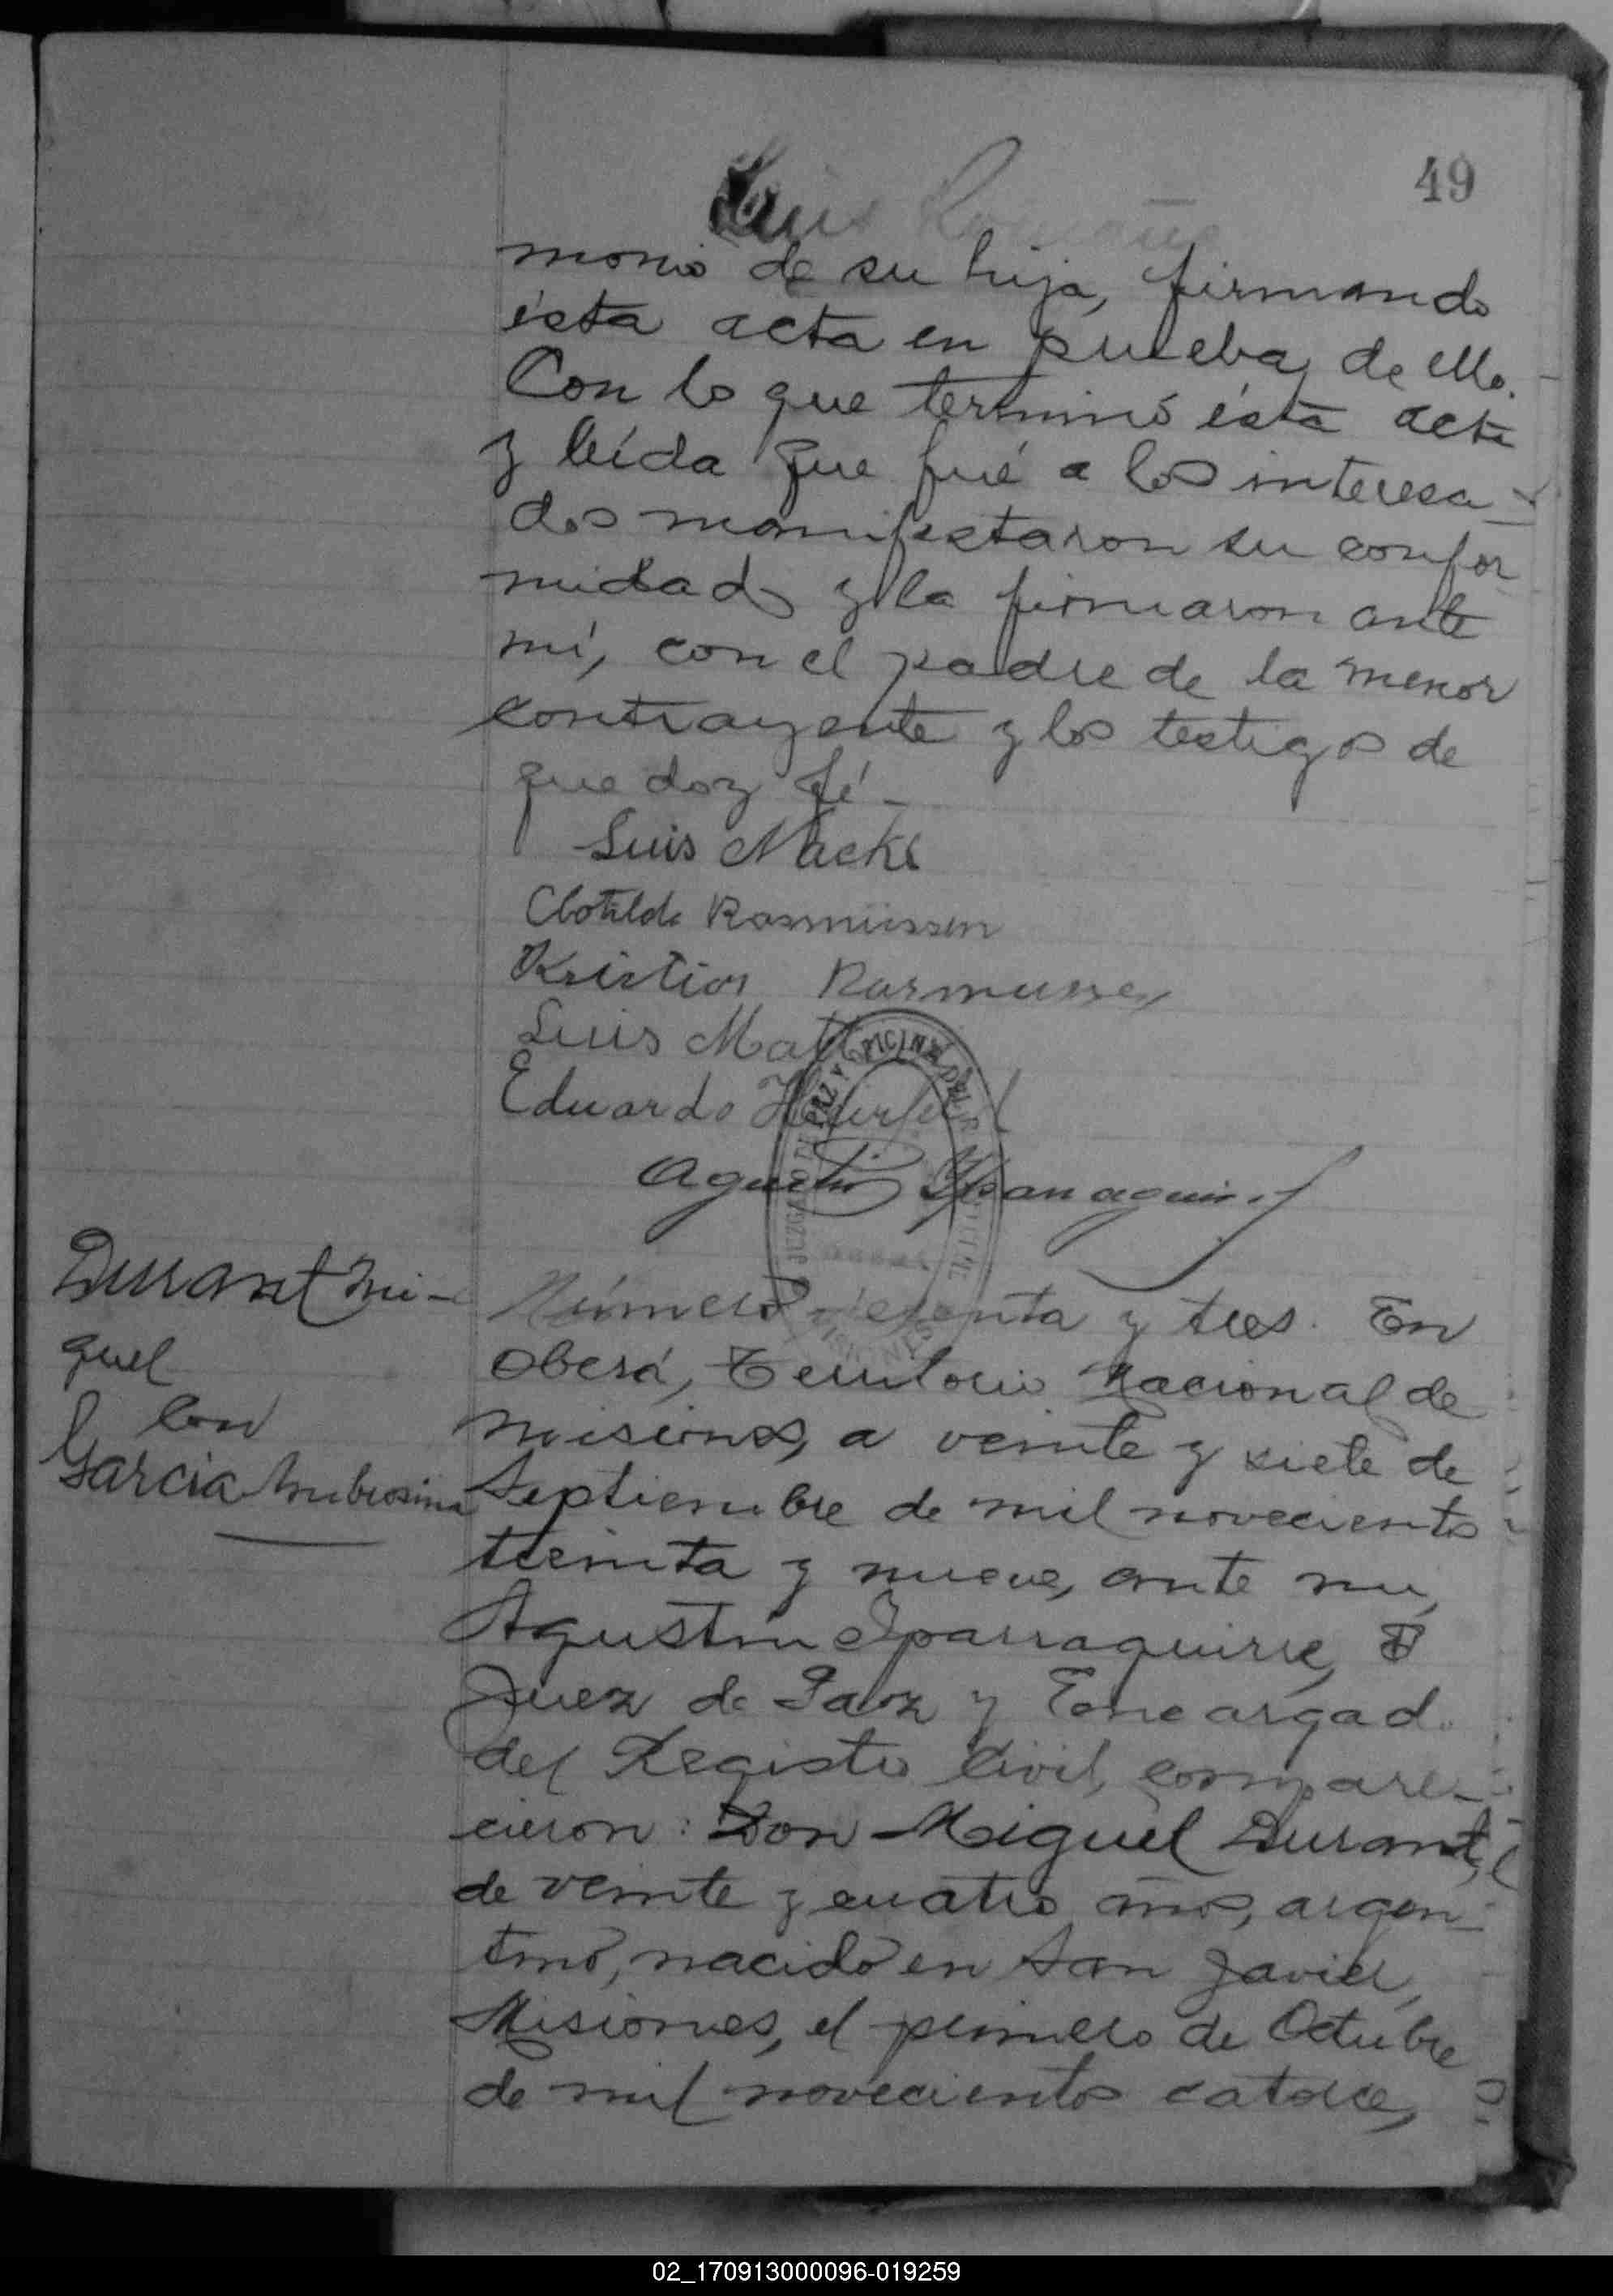 49
Luis
monio de su hija, firmando
ésta acta en prueba de ello.
Con lo que terminó ésta acta
y leída que fué a los interesa-
dos manifestaron su confor
midad y la firmaron ante
mí, con el padre de la menor
contrayente y los testigos de
que doy fé.-
Luis Nacke
Clotilde Rasmussen
Kristian Rasmussen
Luis Matt
Eduardo
Agustin Yparraguirre
JUZGADO DE PAZ Y OFICINA DEL R CIVIL
MISIONES
Durant Mi-
guel
Con
Garcia Ambrosina
Número sesenta y tres. En
Oberá, Territorio Nacional de
Misiones, a veinte y siete de
Septiembre de mil novecientos
treinta y nueve, ante mi,
Agustin Yparraguirre,
Juez de Paz y Encargado
del Registro Civil, compare-
cieron: Don Miguel Durant,
de veinte y cuatro años, argen-
tino, nacido en San Javier,
Misiones, el primero de Octubre
de mil novecientos catorce,
02_170913000096-019259